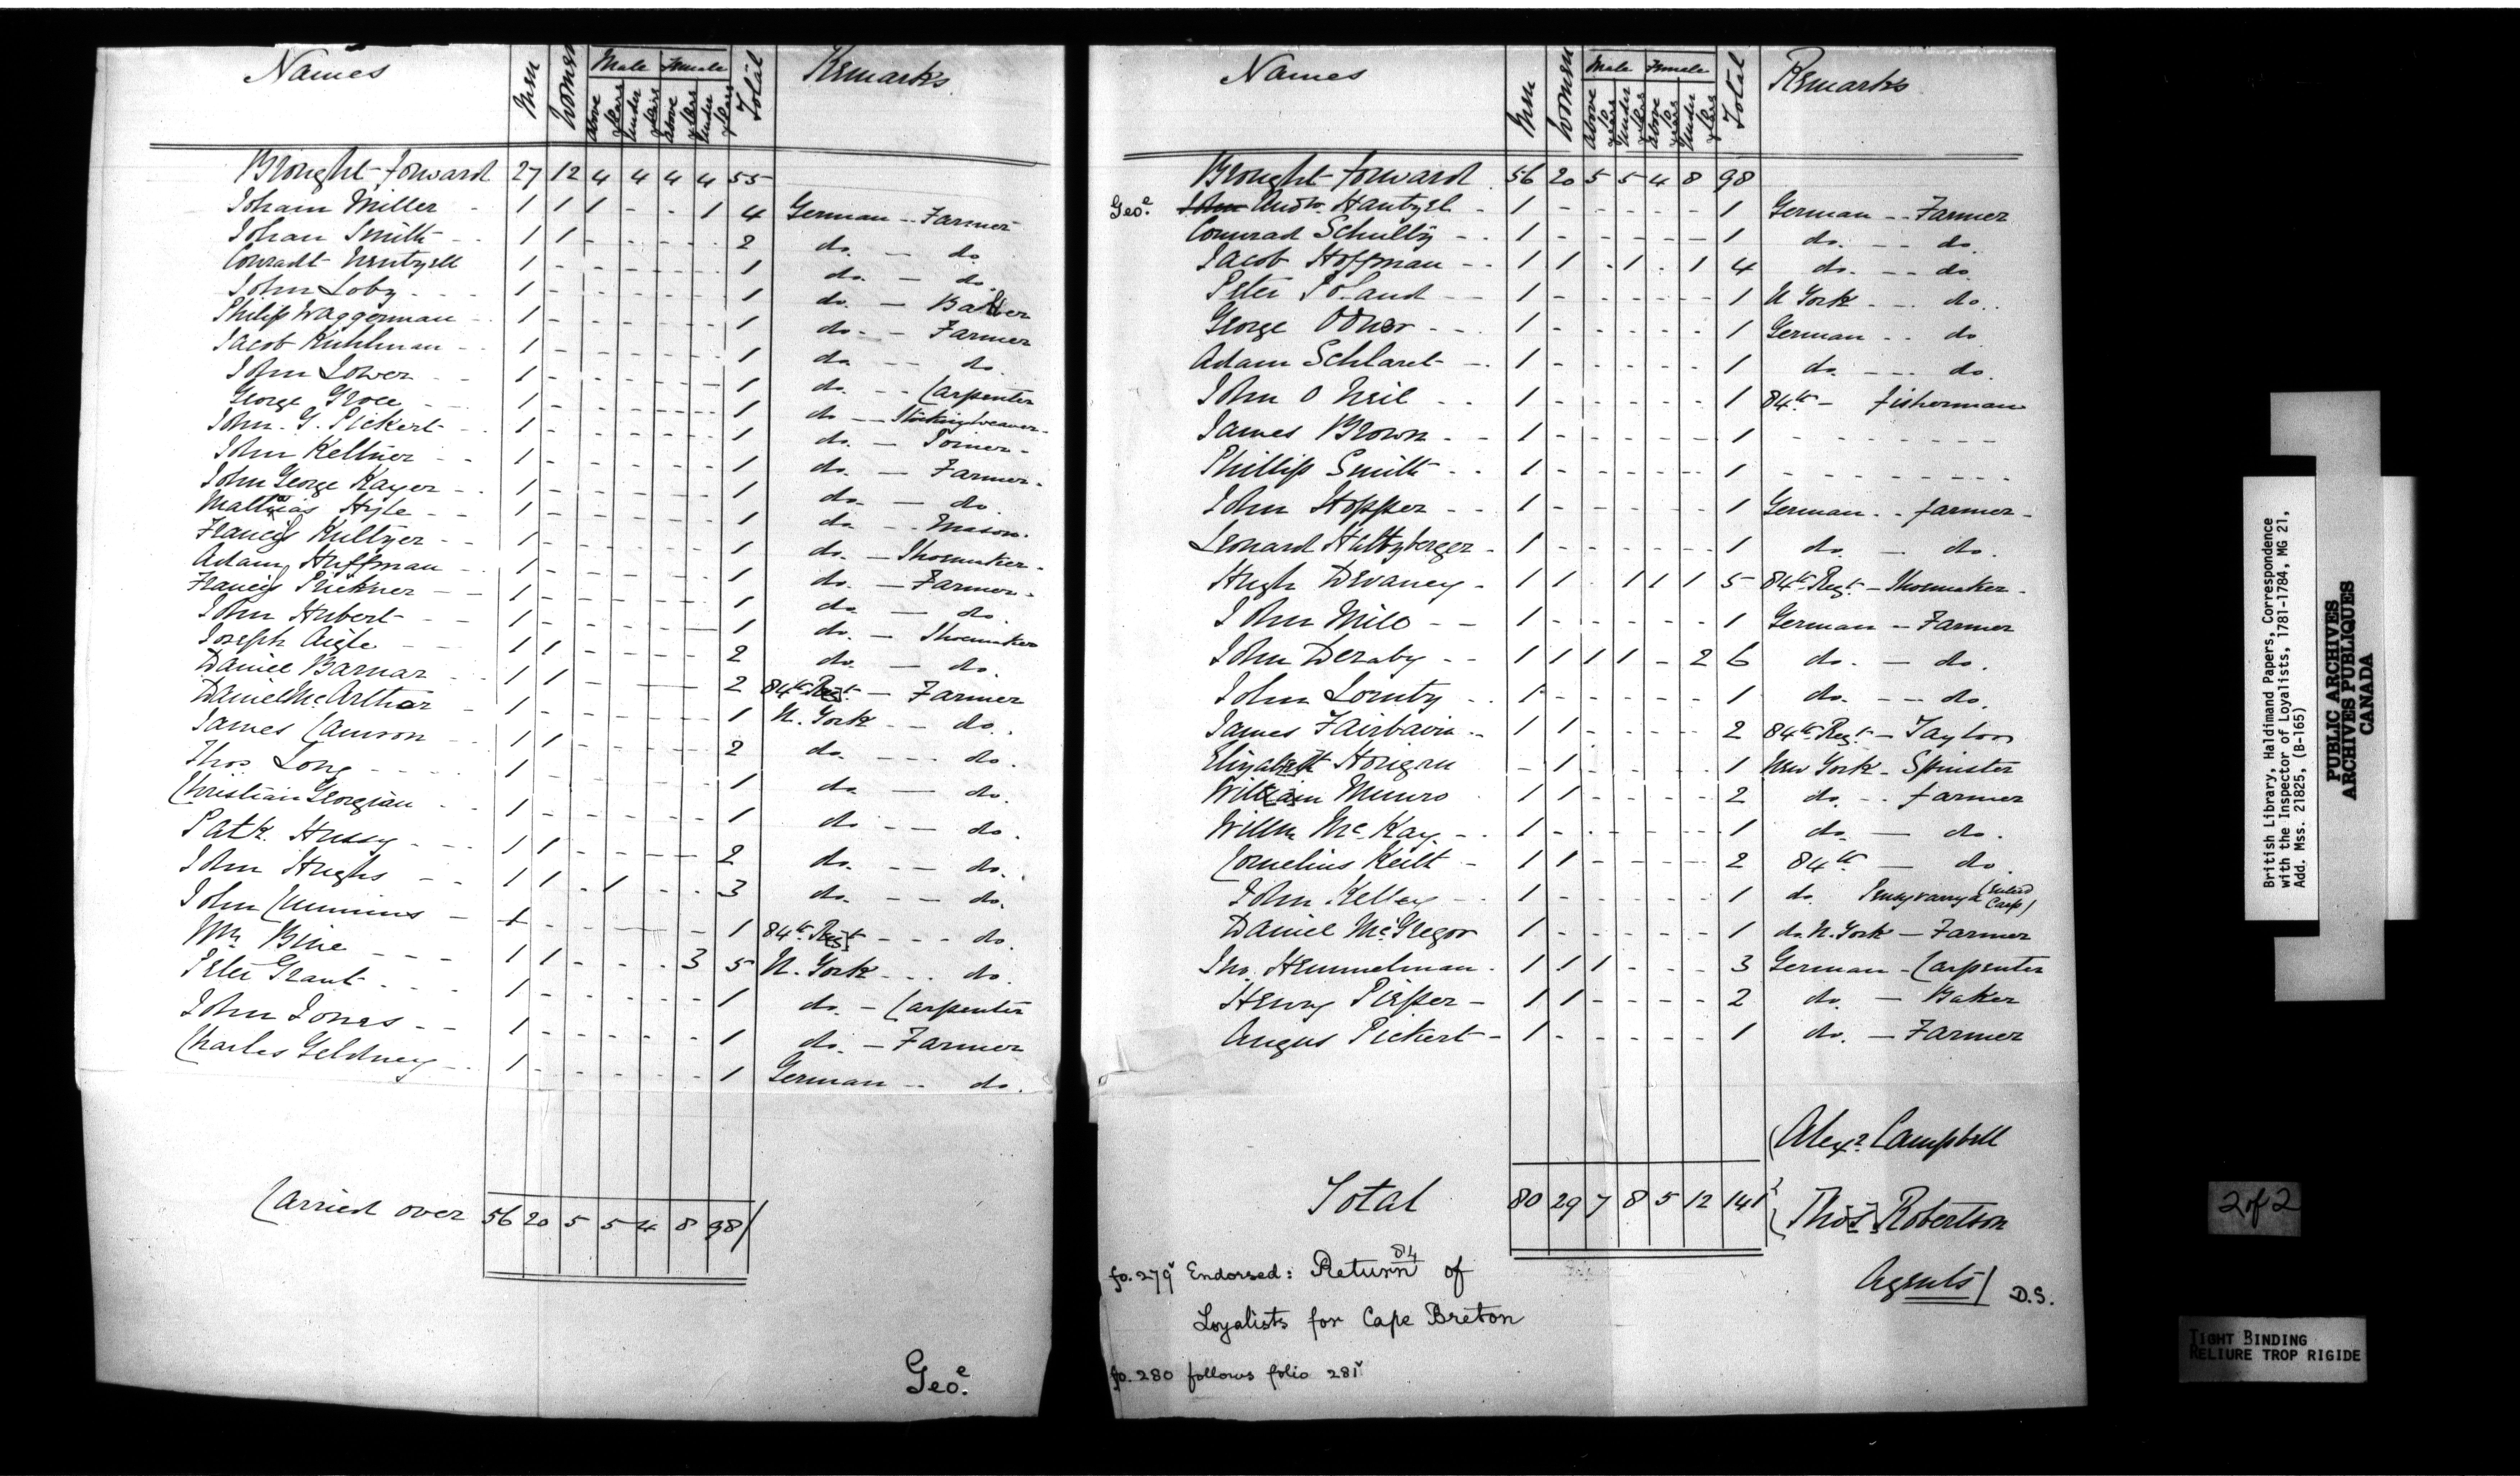 Names Men Women Male Female Total Remarks
above years under years above years under years
Brought forward 27 12 4 4 4 4 55
Joham Miller - 1 1 1 - - 1 4 German -- Farmer
Johan Smith - - 1 1 - - - - 2 do. — do.
Conradt Wentzell 1 - - - - - 1 do. — do.
John Loby - - - 1 - - - - - 1 do. — Baker
Philip Waggonman - - 1 - - - - - 1 do. - Farmer
Jacob Kuhlman - - 1 - - - - - 1 do --- do.
John Lower - - 1 - - - - - 1 do. - - Carpenter
George Groce - - 1 - - - - - 1 do — Stocking weaver -
John. G. Pickert - - 1 - - - - - 1 do. -
John Keltner - - 1 - - - - - 1 do. — Farmer -
John George Kayer - - 1 - - - - - 1 do. — do.
Mathias Hyle - - 1 - - - - - 1 do - - Mason.
Francis Kultzer - - 1 - - - - - 1 do. — Shoemaker -
Adam Huffman - - 1 - - - - - 1 do. — Farmer -
Francis Prickner - - 1 - - - - - 1 do. — do.
John Hubert - - 1 - - - - - 1 do. - Shoemaker
Joseph Aigle - - 1 1 - - - - 2 do. — do.
Daniel Barnar - - 1 1 - - - - 2 84th Regt. — Farmer
Daniel McArthar - 1 - - - - - 1 N. York -- do.
James Camron - - 1 1 - - - - 2 do. --- do.
Thos Long - - - - 1 - - - - - 1 do — do.
Christian Georgian - - 1 - - - - - 1 do -- do.
Patk. Hussy - - - 1 1 - - - - 2 do. - - do.
John Hughs - - 1 1 - 1 - - 3 do. - - do.
John Cummins - 1 - - - - - 1 84th Regt - - - do.
Wm Bine - - - 1 1 - - - 3 5 N. York - - - do.
Peter Grant - - - 1 - - - - - 1 do. - Carpenter
John Jones - - 1 - - - - - 1 do. - Farmer
Charles Geldney - - 1 - - - - - 1 German -- do.
Carried over 56 20 5 5 4 8 98/
Geoe.
Names Men Women Male Female Total Remarks
above 10 years under years above 10 years under years
Brought forward 56 20 5 5 4 8 98
Geoe. John Andw. Hantzsl - 1 - - - - - 1 German -- Farmer
Connrad Schulby - - 1 - - - - - 1 do. -- do.
Jacob Hoffman - - 1 1 - 1 - 1 4 do. -- do.
Peter Poland - - 1 - - - - - 1 N York -- do.
George Odner - - - 1 - - - - - 1 German -- do
Adam Schlaret - - 1 - - - - - 1 do. --- do.
John O Neil - - 1 - - - - - 1 84th - fisherman
James Brown - - 1 - - - - - 1 - - - - - - - -
Phillip Smith - - 1 - - - - - 1 - - - - - - -
John Hopper - - 1 - - - - - 1 German -- farmer -
Leonard Haltzberger - 1 - - - - - 1 do. — do.
Hugh Devaney - 1 1 - 1 1 1 5 84th Regt. - Shoemaker -
John Milo - - 1 - - - - - 1 German - Farmer
John Deraby - - 1 1 1 1 - 2 6 do. — do.
John Lornty - - 1 - - - - - 1 do. -- do.
James Fairbavin - - 1 1 - - - - 2 84th Regt. - Taylor
Elizabeth Horigan - 1 - - - - 1 New York - Spinster
William Munro - 1 1 - - - - 2 do. -- farmer
Willm McKay - - 1 - - - - - 1 do. — do.
Cornelius Keilt - 1 1 - - - - 2 84th — do.
John Kelley - - 1 - - - - - 1 do.
Daniel McGregor 1 - - - - - 1 do. N. York - Farmer
Jno. Hemmelman - 1 1 1 - - - 3 German - Carpenter
Henry Piesper - 1 1 - - - - 2 do. - Baker
Angus Pickert - 1 - - - - - 1 do. - Farmer
(Alexr. Campbell
Total 80 29 7 8 5 12 141
Thos. Robertson
Agents/ D.S.
fo. 279v Endorsed: Return of
84
Loyalists for Cape Breton
fo. 280 follows folio 281v
British Library, Haldimand Papers, Correspondence
with the Inspector of Loyalists, 1781-1784, MG 21,
Add. Mss. 21825, (B-165)
PUBLIC ARCHIVES
ARCHIVES PUBLIQUES
CANADA
2 of 2
TIGHT BINDING
RELIURE TROP RIGIDE